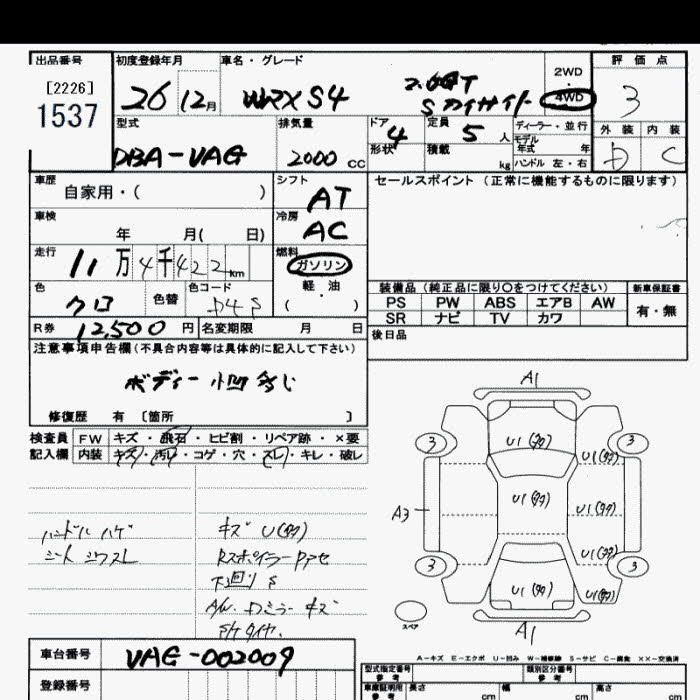 出品番号
[2226]
1537
初度登録年月
26 12月
車名・グレード
WRX S4
2.0GT
S アイサイト
2WD
・
4WD
評価点
3
外装 内装
D C
型式
DBA-VAG
排気量
2000 cc
ドア 4
形状
定員 5人
積載 kg
ディーラー・並行
モデル年式 年
ハンドル 左・右
車歴
自家用・( )
シフト
AT
車検
年 月( 日)
冷房
AC
走行
11万4千422km
燃料
ガソリン
軽・油
( )
色
クロ
色替
色コード
D4S
R券 12,500円
名変期限 月 日
セールスポイント(正常に機能するものに限ります)
装備品(純正品に限り○をつけてください)
新車保証書
PS PW ABS エアB AW
SR ナビ TV カワ
有・無
後日品
注意事項申告欄(不具合内容等は具体的に記入して下さい)
ボディー小凹多し
修復歴 有〔箇所 〕
検査員
記入欄
FW キズ・飛石・ヒビ割・リペア跡・×要
内装 キズ・汚れ・コゲ・穴・スレ・キレ・破レ
ハンドルハゲ
シートシワスレ
キズ U(多)
Rスポイラーアセ
下廻りS
A/W、ドアミラーキズ
A1
3
3
U1(多)
U1(多)
A3
U1(多)
U1(多)
U1(多)
3
3
U1(多)
U1(多)
スペア
A1
A-キズ E-エクボ U-凹み W-補修跡 S-サビ C-腐食 ××-交換済
車台番号
VAG-002009
登録番号
型式指定番号
参考
類別区分番号
参考
車庫証明用
参考
長さ cm
幅 cm
高さ cm